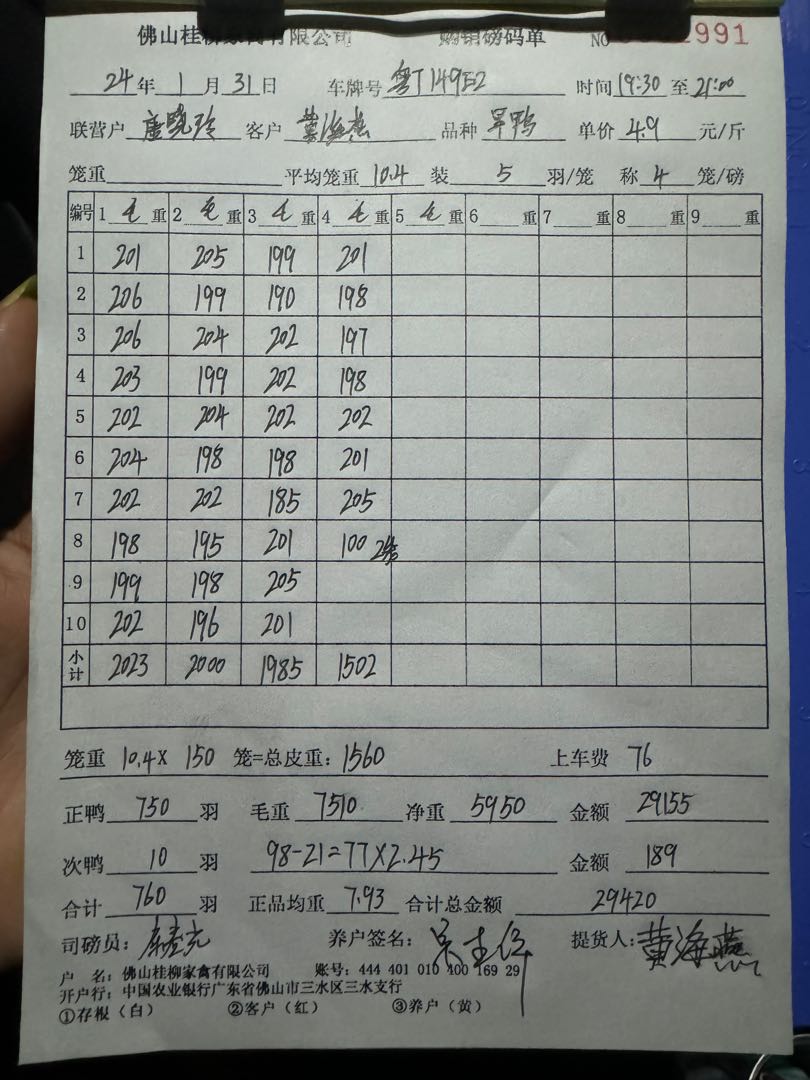 佛山桂柳家禽有限公司 购销磅码单 NO 991
24年 1月 31日 车牌号 粤T14952 时间 19:30 至 21:00
联营户 唐晓玲 客户 黄海燕 品种 旱鸭 单价 4.9 元/斤
笼重 平均笼重 10.4 装 5 羽/笼 称 4 笼/磅
编号 1 毛 重 2 毛 重 3 毛 重 4 毛 重 5 毛 重 6 重 7 重 8 重 9 重
1 201 205 199 201
2 206 199 190 198
3 206 204 202 197
4 203 199 202 198
5 202 204 202 202
6 204 198 198 201
7 202 202 185 205
8 198 195 201 100 2笼
9 199 198 205
10 202 196 201
小计 2023 2000 1985 1502
笼重 10.4X 150 笼=总皮重: 1560 上车费 76
正鸭 750 羽 毛重 7510 净重 5950 金额 29155
次鸭 10 羽 98-21=77X2.45 金额 189
合计 760 羽 正品均重 7.93 合计总金额 29420
司磅员: 养户签名: 提货人: 黄海燕
户 名: 佛山桂柳家禽有限公司 账号: 444 401 010 400 169 29
开户行: 中国农业银行广东省佛山市三水区三水支行
①存根（白） ②客户（红） ③养户（黄）